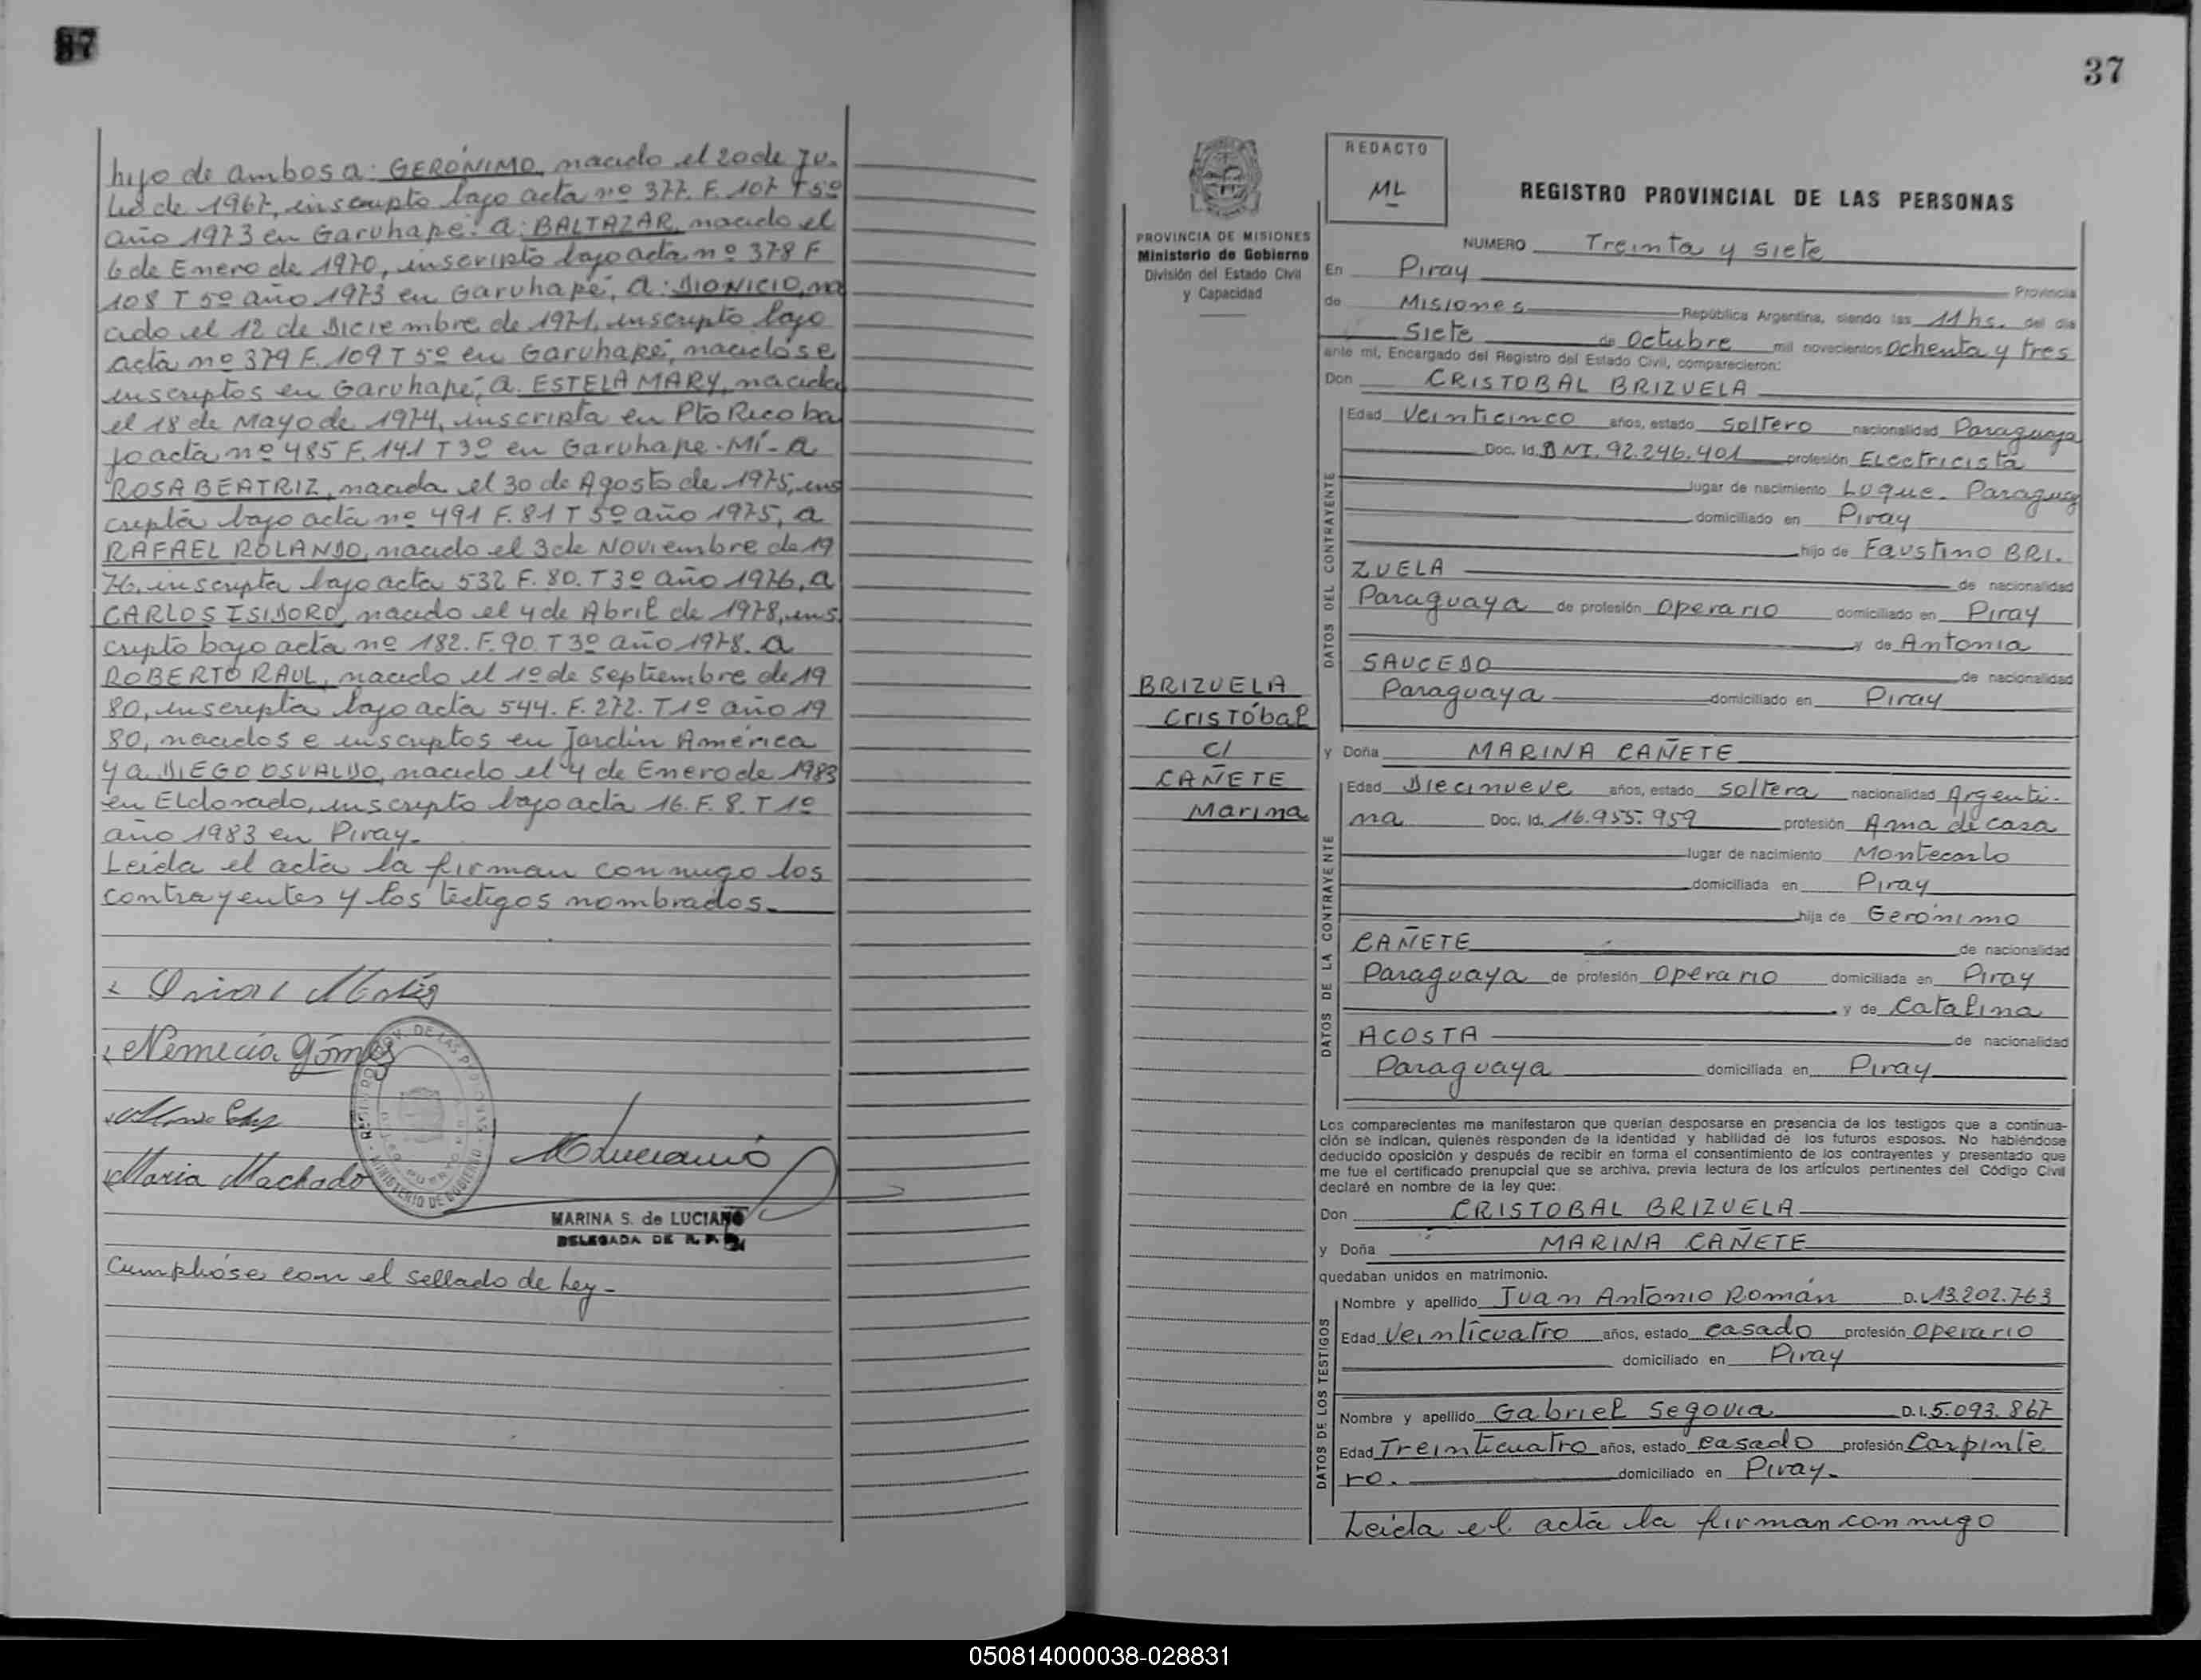 37
hijo de ambos a: GERÓNIMO, nacido el 20 de Ju-
lio de 1967, inscripto bajo acta nº 377. F. 107 T 5º
año 1973 en Garuhapé: a: BALTAZAR, nacido el
6 de Enero de 1970, inscripto bajo acta nº 378 F
108 T 5º año 1973 en Garuhapé, a: DIONICIO, na
cido el 12 de Diciembre de 1971, inscripto bajo
acta nº 379 F. 109 T 5º en Garuhapé, nacidos e
inscriptos en Garuhapé, a. ESTELA MARY, nacida
el 18 de Mayo de 1974, inscripta en Pto Rico ba
jo acta nº 485 F. 141 T 3º en Garuhape-Mí- a
ROSA BEATRIZ, nacida el 30 de Agosto de 1975, ins
cripta bajo acta nº 491 F. 81 T 5º año 1975, a
RAFAEL ROLANDO, nacido el 3 de Noviembre de 19
76, inscripta bajo acta 532 F. 80. T 3º año 1976, a
CARLOS ISIDORO, nacido el 4 de Abril de 1978, ins
cripto bajo acta nº 182. F. 90 T 3º año 1978. a
ROBERTO RAUL, nacido el 1º de Septiembre de 19
80, inscripta bajo acta 544. F. 272. T 1º año 19
80, nacidos e inscriptos en Jardín América
y a DIEGO OSVALDO, nacido el 4 de Enero de 1983
en Eldorado, inscripto bajo acta 16. F. 8. T 1º
año 1983 en Piray.-
Leida el acta la firman conmigo los
contrayentes y los testigos nombrados.-
Nemecia Gómez
Maria Machado
MLuciano
MARINA S. de LUCIANO
DELEGADA DE R. P.
Cumplióse con el sellado de Ley-
37
PROVINCIA DE MISIONES
Ministerio de Gobierno
División del Estado Civil
y Capacidad
BRIZUELA
Cristóbal
C/
CAÑETE
Marina
REDACTO
ML
REGISTRO PROVINCIAL DE LAS PERSONAS
NUMERO Treinta y siete
En Piray Provincia
de Misiones República Argentina, siendo las 11 hs. del dia
Siete de Octubre mil novecientos Ochenta y tres
ante mí, Encargado del Registro del Estado Civil, comparecieron:
Don CRISTOBAL BRIZUELA
DATOS DEL CONTRAYENTE
Edad Veinticinco años, estado Soltero nacionalidad Paraguaya
Doc. Id. DNI. 92.246.401 profesión Electricista
lugar de nacimiento Luque. Paraguay
domiciliado en Piray
hijo de Faustino BRI.
ZUELA de nacionalidad
Paraguaya de profesión Operario domiciliado en Piray
y de Antonia
SAUCEDO de nacionalidad
Paraguaya domiciliado en Piray
y Doña MARINA CAÑETE
DATOS DE LA CONTRAYENTE
Edad Diecinueve años, estado Soltera nacionalidad Argenti-
na Doc. Id. 16.955.959 profesión Ama de casa
lugar de nacimiento Montecarlo
domiciliada en Piray
hija de Gerónimo
CAÑETE de nacionalidad
Paraguaya de profesión Operario domiciliada en Piray
y de Catalina
ACOSTA de nacionalidad
Paraguaya domiciliada en Piray
Los comparecientes me manifestaron que querían desposarse en presencia de los testigos que a continua-
ción se indican, quienes responden de la identidad y habilidad de los futuros esposos. No habiéndose
deducido oposición y después de recibir en forma el consentimiento de los contrayentes y presentado que
me fue el certificado prenupcial que se archiva, previa lectura de los artículos pertinentes del Código Civil
declaré en nombre de la ley que:
Don CRISTOBAL BRIZUELA
y Doña MARINA CAÑETE
quedaban unidos en matrimonio.
DATOS DE LOS TESTIGOS
Nombre y apellido Juan Antonio Román D.I. 13.202.763
Edad Veinticuatro años, estado casado profesión Operario
domiciliado en Piray
Nombre y apellido Gabriel Segovia D.I. 5.093.867
Edad Treinticuatro años, estado casado profesión Carpinte
ro. domiciliado en Piray.
Leida el acta la firman conmigo
050814000038-028831